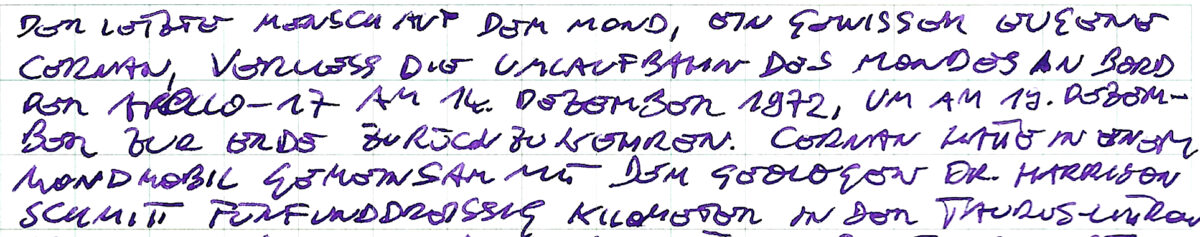 DER LETZTE MENSCH AUF DEM MOND, EIN GEWISSER EUGENE
CERNAN, VERLIESS DIE UMLAUFBAHN DES MONDES AN BORD
DER APOLLO-17 AM 14. DEZEMBER 1972, UM AM 19. DEZEM-
BER ZUR ERDE ZURÜCKZUKEHREN. CERNAN HATTE IN EINEM
MONDMOBIL GEMEINSAM MIT DEM GEOLOGEN DR. HARRISON
SCHMITT FÜNFUNDDREISSIG KILOMETER IN DER TAURUS-LITTROW